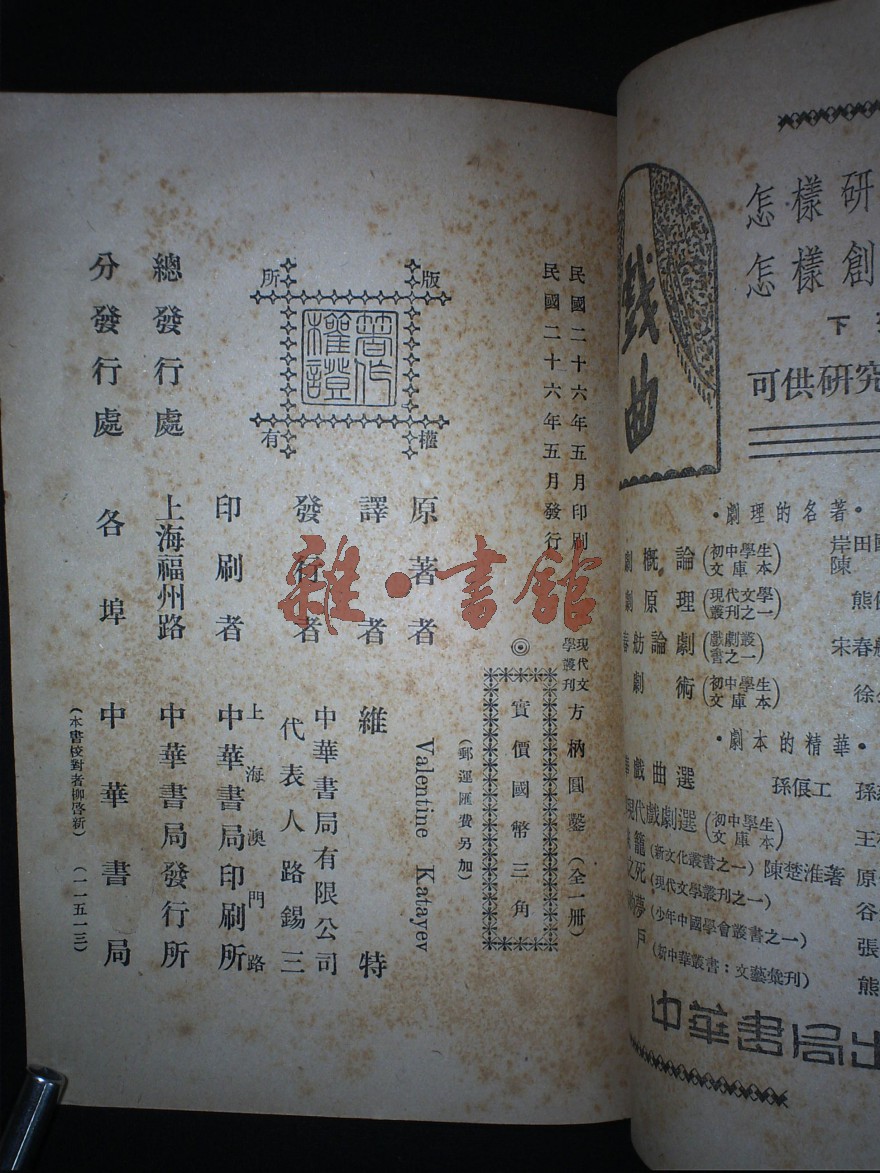 民國二十六年五月印刷
民國二十六年五月發行
現代文學叢刊
方枘圓鑿（全一冊）
◎
實價國幣三角
（郵運匯費另加）
原著者 Valentine Katayev
譯者 維特
發行者 中華書局有限公司
代表人 路錫三
印刷者 上海澳門路
中華書局印刷所
總發行處 上海福州路 中華書局發行所
分發行處 各埠 中華書局
（本書校對者柳啓新）（一一五一三）
版權所有
著作權證
雜·書館
戲曲
怎樣研
怎樣創
下
可供研究
·劇理的名著·
劇概論（初中學生文庫本）岸田國 陳
劇原理（現代文學叢刊之一）熊
春舫論劇（戲劇叢書之一）宋春舫
劇術（初中學生文庫本）徐
·劇本的精華·
戲曲選 孫俍工 孫
現代戲劇選（初中學生文庫本）王
籠（新文化叢書之一）陳楚淮著
之死（現代文學叢刊之一）
夢（少年中國學會叢書之一）張
戶（新中華叢書：文藝彙刊）熊
中華書局出